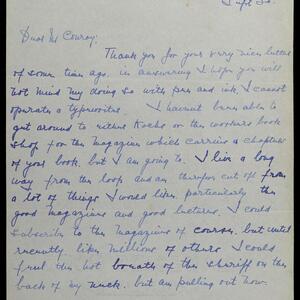 Sept 20.
Dear Mr Conroy:
Thank you for your very nice letter
of some time ago. in answering I hope you will
not mind my doing so with pen and ink. I cannot
operate a typewriter. I havent been able to
get around to either Kochs or the workers book
shop for the magazine which carries a chapter
of your book, but I am going to. I live a long
way from the loop and am therefor cut off from
a lot of things I would like, particularly the
good magazines and good lectures. I could
subscribe to the magazines of course, but until
recently, like millions of others I could
feel the hot breath of the sheriff on the
back of my neck. but am pulling out now.